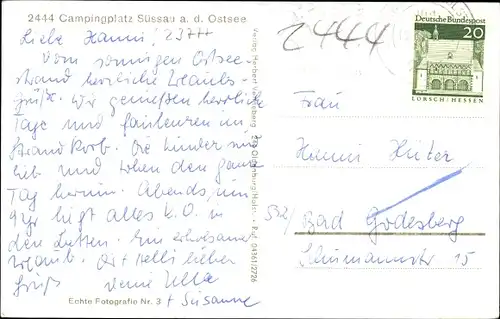 2444 Campingplatz Süssau a. d. Ostsee
Liebe Hanni! 23744
Vom sonnigen Ostsee-
strand herzliche Urlaubs-
grüße. Wir genießen herrliche
Tage und faulenzen im
Strandkorb. Die Kinder sind
lieb und toben den ganzen
Tag herum. Abends um
9 Uhr liegt alles k.O. in
den Betten. Ein erholsamer
Urlaub. Dir + Helli lieben
Gruß Deine Ulla
+ Susanne
Echte Fotografie Nr. 3
Verlag Herbert
Oldenburg/Holst. - Ruf: 04361/2726
2444
Deutsche Bundespost
20
LORSCH/HESSEN
Frau
Hanni Hüter
532/ Bad Godesberg
Schumannstr 15